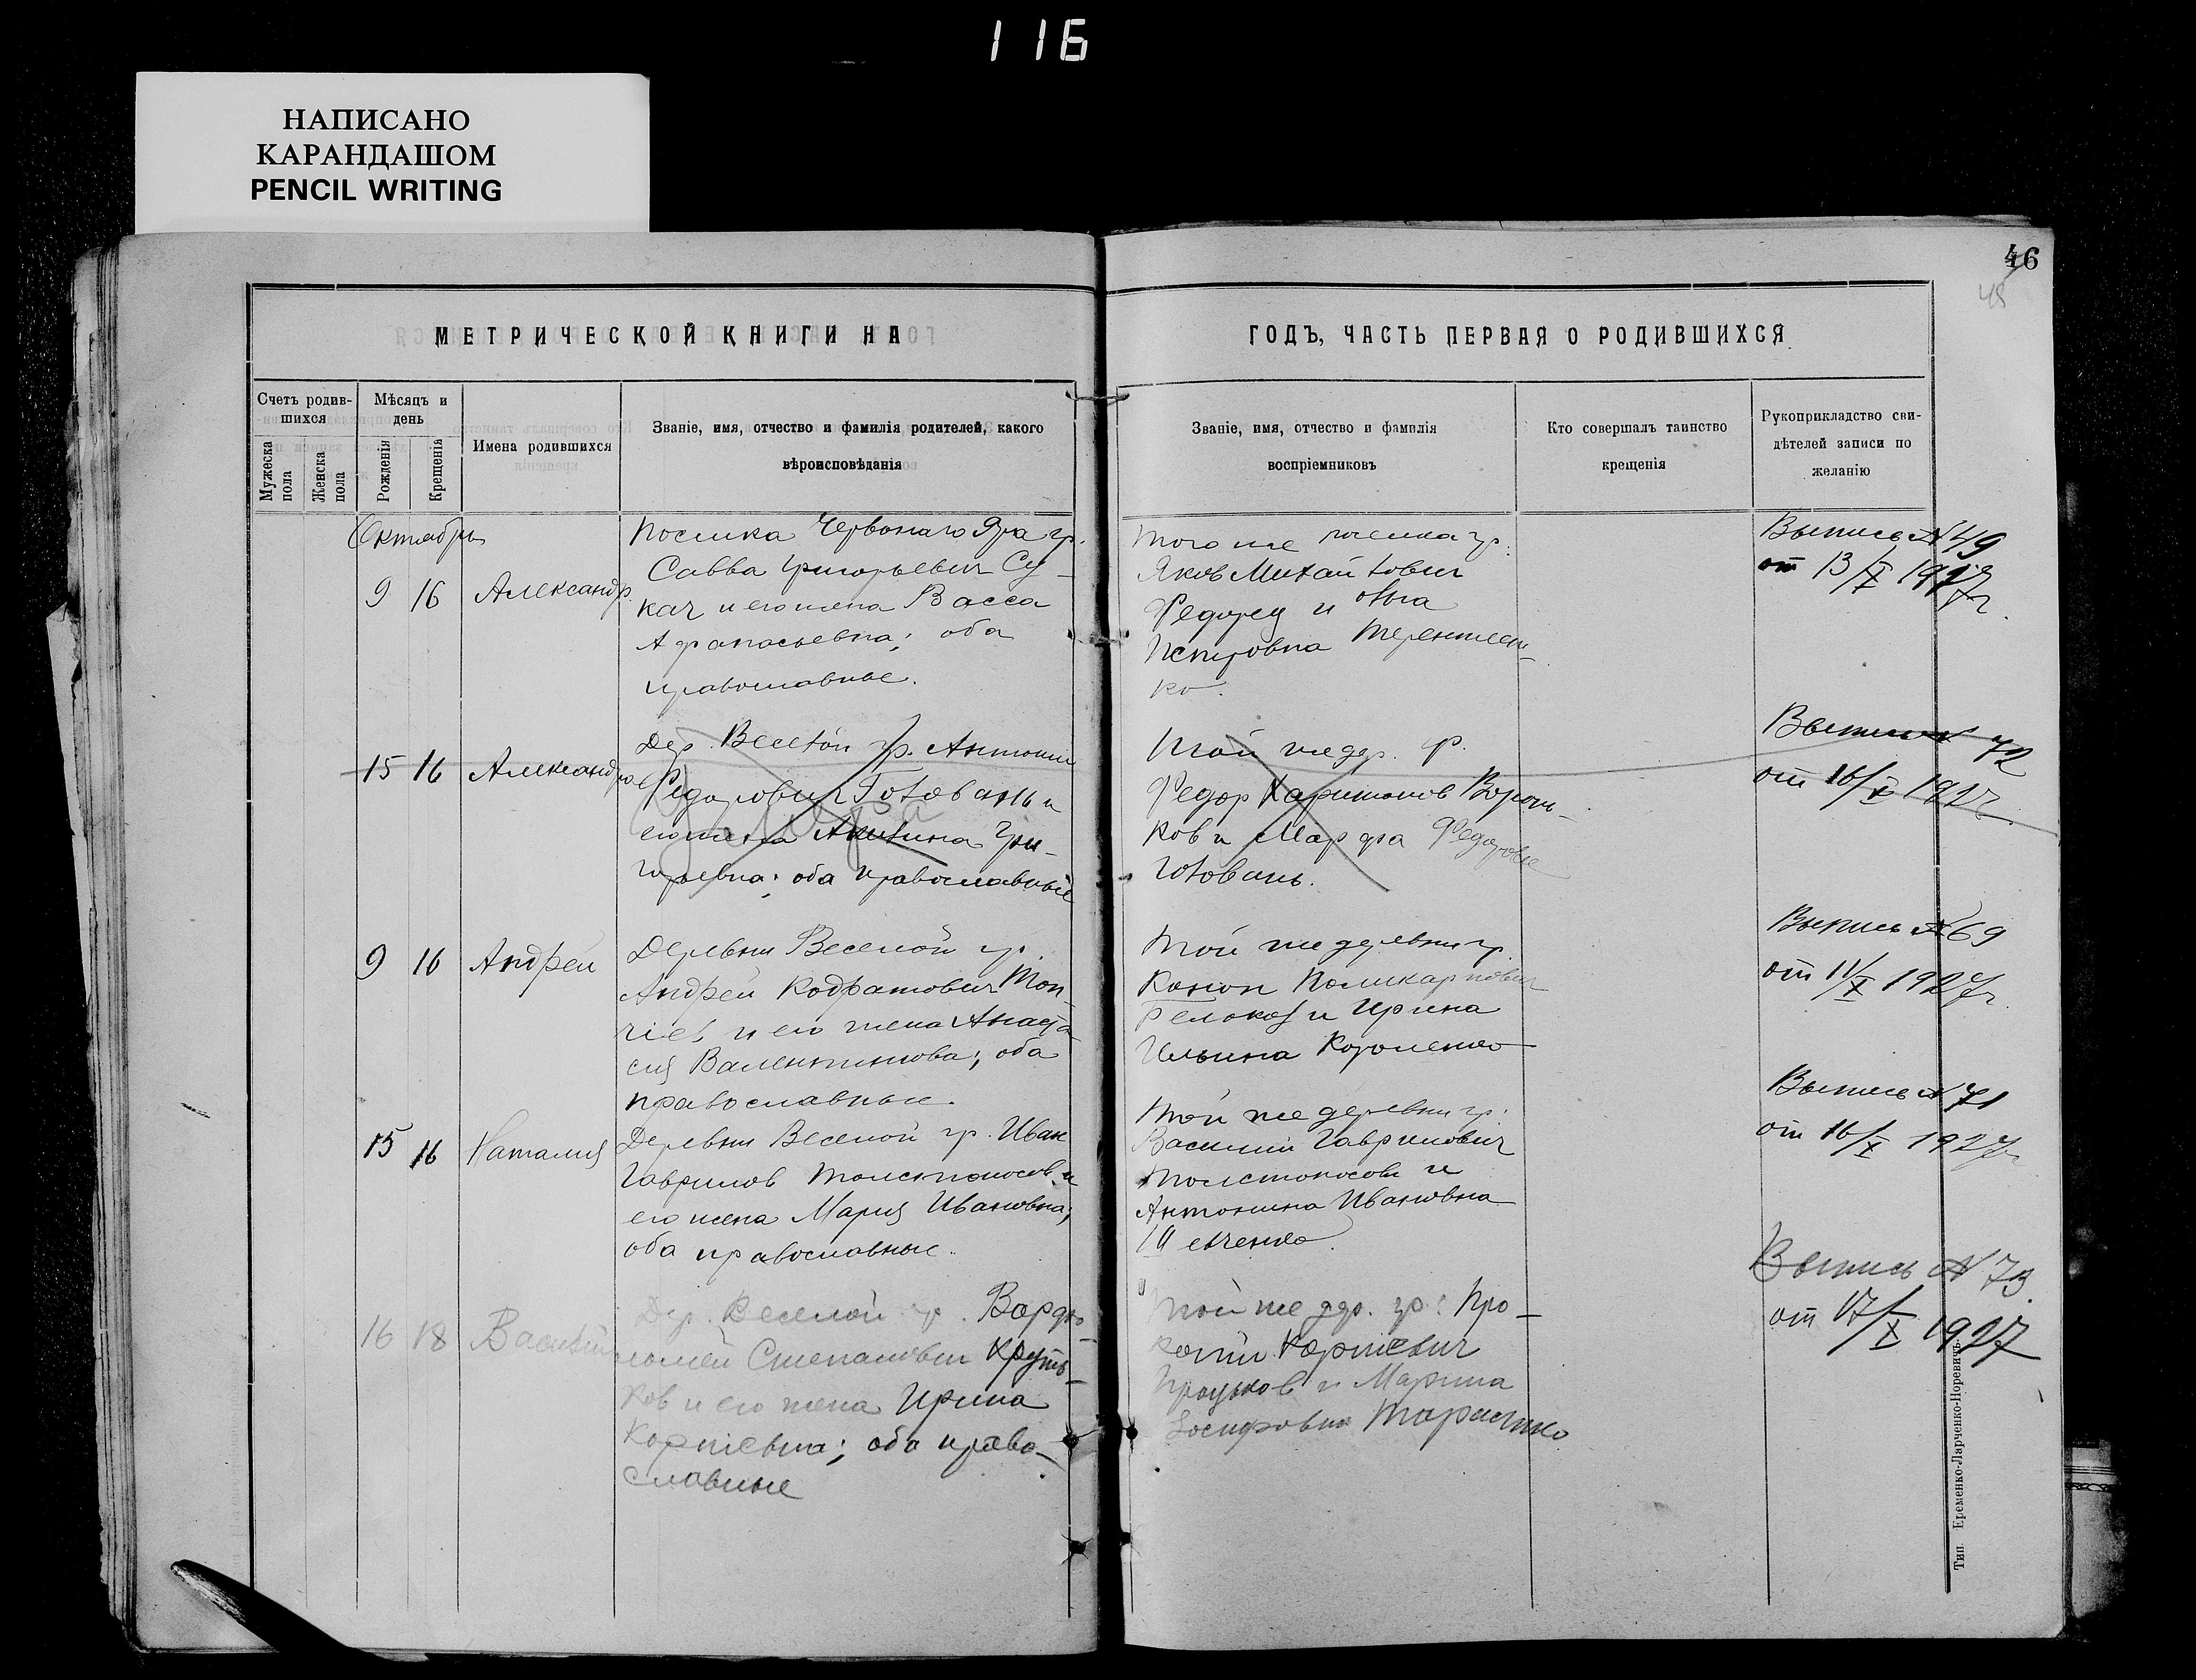 116
НАПИСАНО
КАРАНДАШОМ
PENCIL WRITING
46
45
МЕТРИЧЕСКОЙ КНИГИ НА
ГОДЪ, ЧАСТЬ ПЕРВАЯ О РОДИВШИХСЯ
Счетъ родив-
шихся
Мужеска
пола
Женска
пола
Мѣсяцъ и
день
Рожденія
Крещенія
Имена родившихся
Званіе, имя, отчество и фамилія родителей, какого
вѣроисповѣданія
Званіе, имя, отчество и фамилія
воспріемниковъ
Кто совершалъ таинство
крещенія
Рукоприкладство сви-
дѣтелей записи по
желанію
Октябрь
9 16 Александр
Поселка Червонаго Яра гр.
Савва Григорьевич Су-
кач и его жена Васса
Афанасьевна; оба
православные.
того же поселка гр.
Яков Михайлович
Федорец и
Петровна Терентьен-
ко.
Выпись № 49
от 13/X 1927 г.
15 16 Александра
Дер. Веселой гр. Антоний
Федорович Головань и
его жена Акилина Гри-
горьевна; оба православные
Той же др. гр.
Федор Харитонов Ворон-
ков и Марфа Федоровна
Головань.
Выпись № 72
от 16/X 1927
9 16 Андрей
Деревни Веселой гр.
Андрей Кодратович
и его жена Анаста
сия Валентинова; оба
православные.
Той же деревни гр.
Конон Поликарпович
и Ирина
Ильина Короленко
Выпись № 69
от 11/X 1927 г.
15 16 Наталия
Деревни Веселой гр. Иван
Гаврилов Толстоносов и
его жена Мария Ивановна;
оба православные.
Той же деревни гр.
Василий Гаврилович
Толстоносов и
Антонина Ивановна
Шевченко.
Выпись № 71
от 16/X 1927 г.
16 18 Василий
Дер. Веселой гр. Варфо-
ломей Степанович Круть-
ков и его жена Ирина
Корнiевна; оба право-
славные
Той же др. гр. Про-
копий Корнiевич
и Марина
Иосифовна Тарасенко
Выпись № 73
от 17/X 1927
Тип. Еременко-Ларченко-Поревичъ.